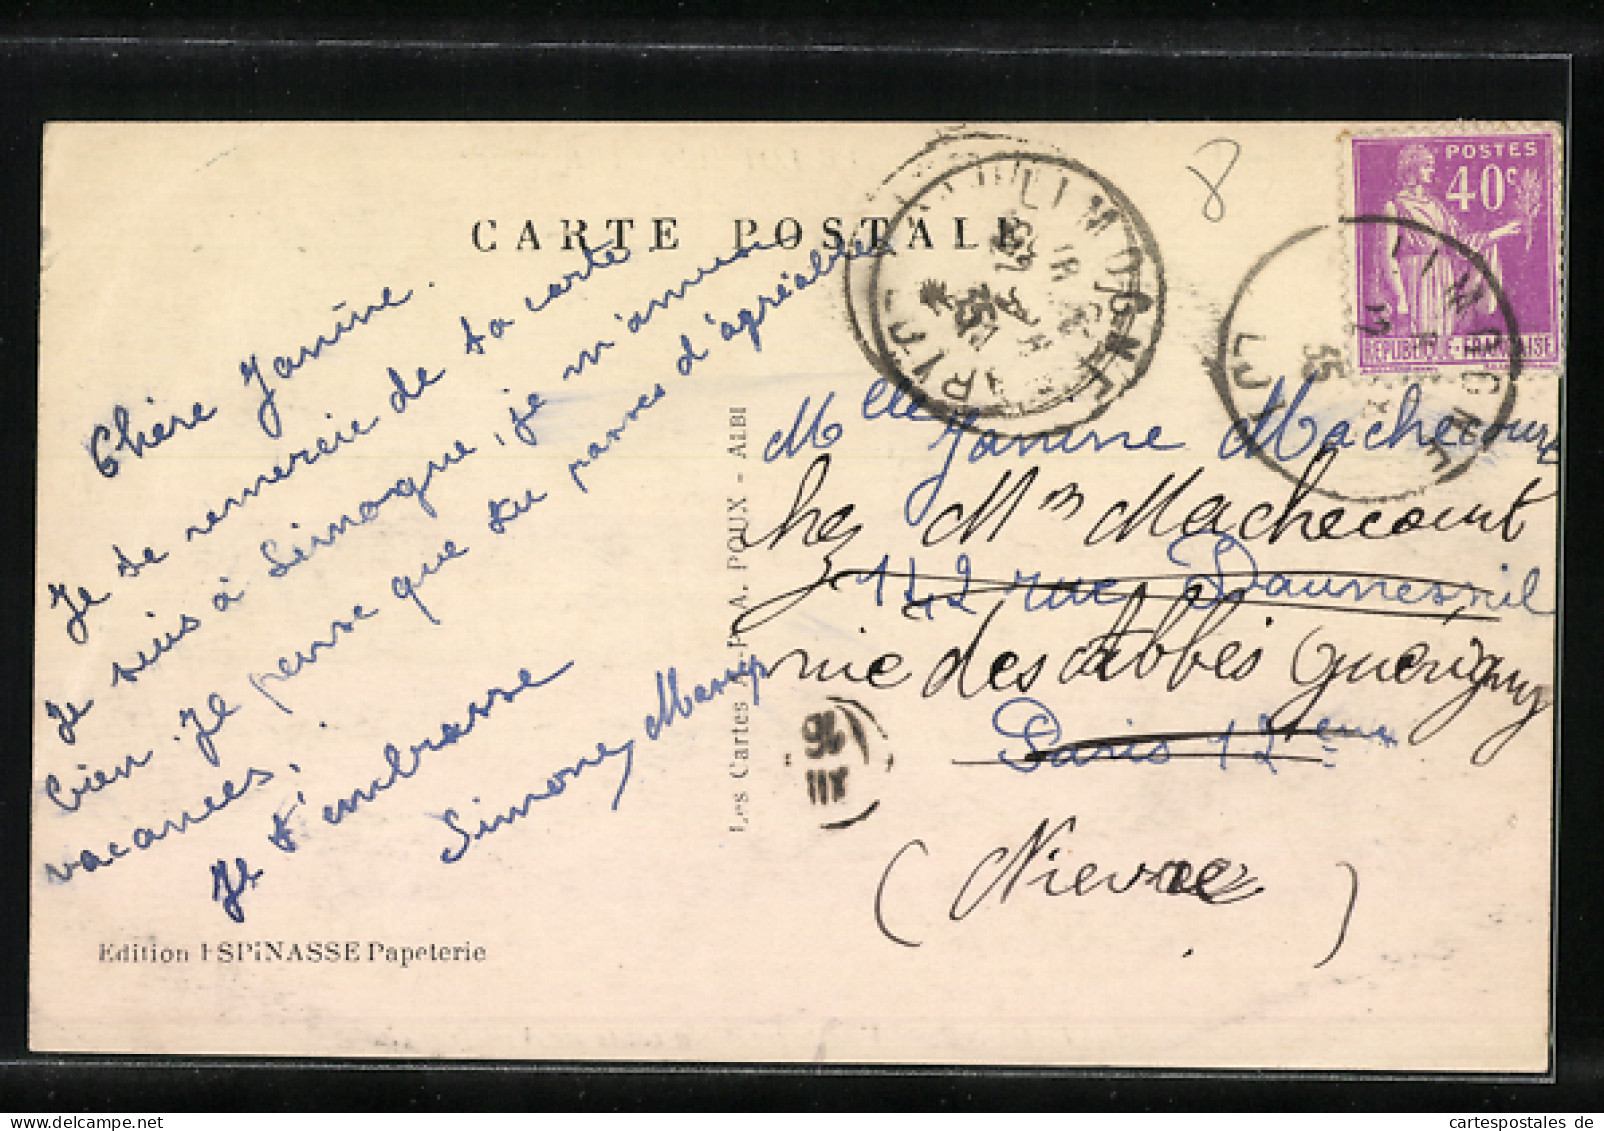 CARTE POSTALE
8
POSTES
40c
REPUBLIQUE-FRANÇAISE
LIMOGNE
LOT
35
Chère Janine.
Je te remercie de ta carte
Je suis à Limogne, je m'amuse
bien. Je pense que tu passes d'agréables
vacances.
Je t'embrasse
Simone Massip
Les Cartes A. POUX - ALBI
Mlle Janine Machecourt
chez Mr Machecourt
142 rue Daumesnil
rue des Abbés Guérigny
Paris 12ème
(Nièvre)
XII
Edition ESPINASSE Papeterie
cartespostales de